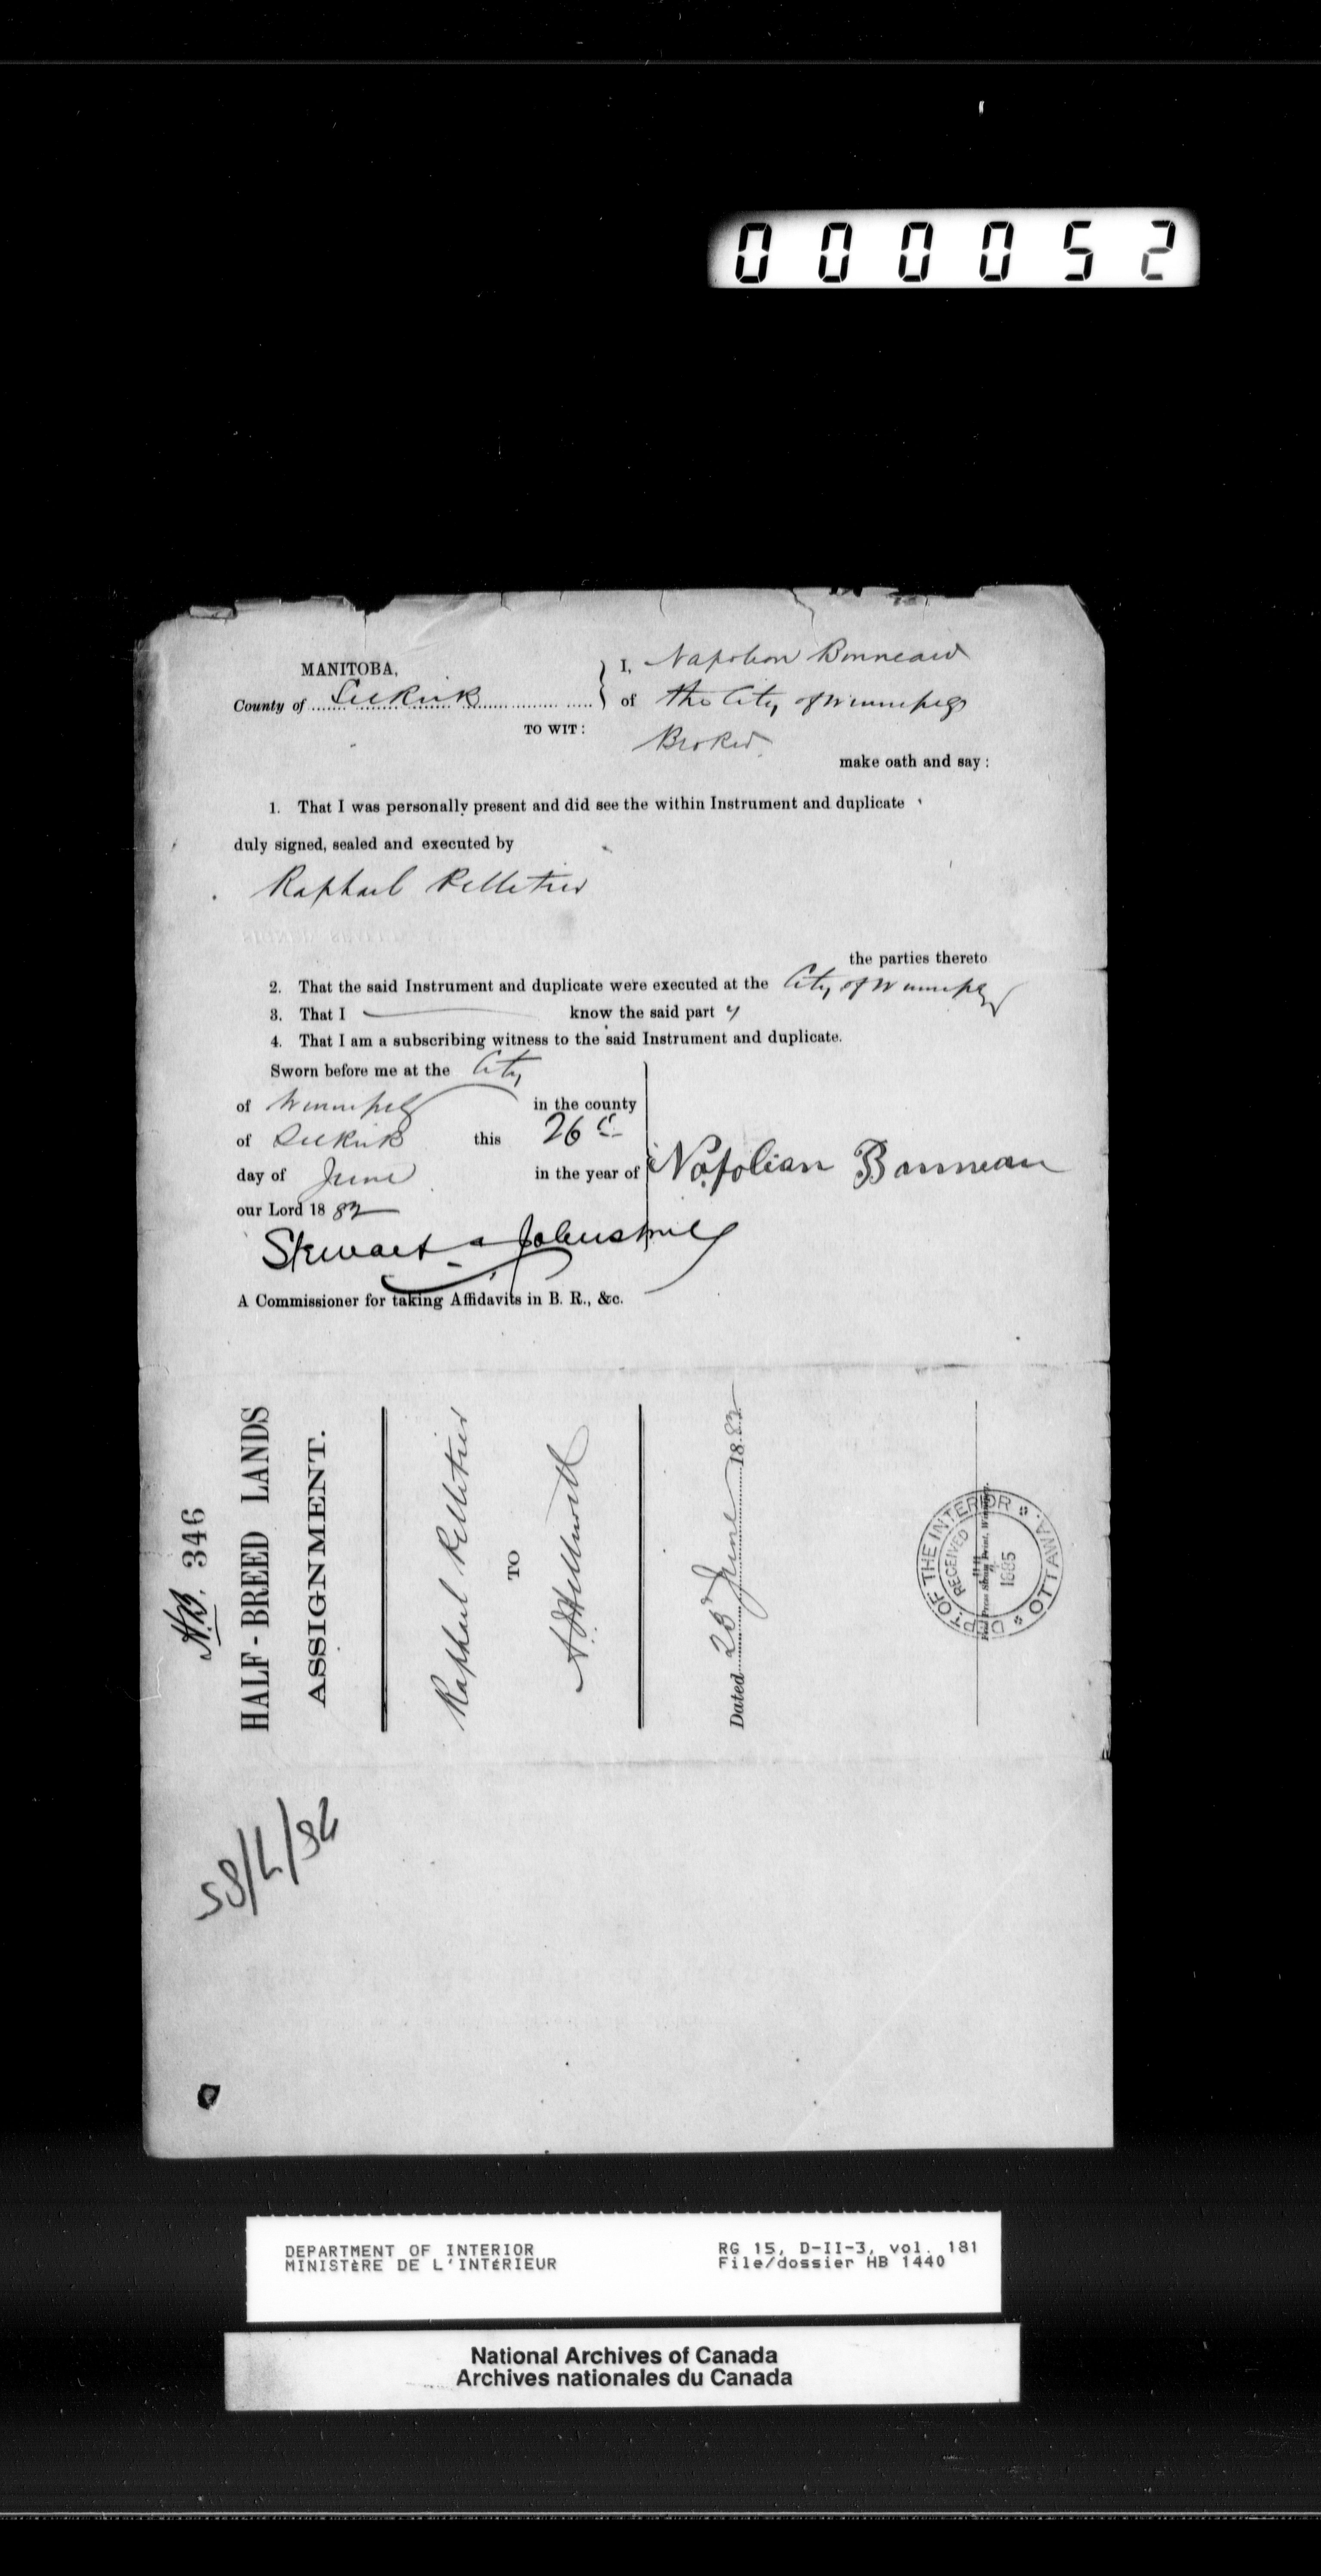 000052
MANITOBA,
County of Selkirk
TO WIT:
I, Napoleon Bonneau
of the City of Winnipeg
Broker
make oath and say:
1. That I was personally present and did see the within Instrument and duplicate
duly signed, sealed and executed by
Raphael Pelletier
the parties thereto
2. That the said Instrument and duplicate were executed at the City of Winnipeg
3. That I know the said part y
4. That I am a subscribing witness to the said Instrument and duplicate.
Sworn before me at the City
of Winnipeg in the county
of Selkirk this 26th
day of June in the year of
our Lord 1882
Napolian Bonneau
Stewart Johnstone
A Commissioner for taking Affidavits in B. R., &c.
H.B. 346
HALF-BREED LANDS
ASSIGNMENT.
Raphael Pelletier
TO
Dated June 1882
DEPT. OF THE INTERIOR
RECEIVED
1885
OTTAWA
DEPARTMENT OF INTERIOR
MINISTÈRE DE L'INTÉRIEUR
RG 15, D-II-3, vol. 181
File/dossier HB 1440
National Archives of Canada
Archives nationales du Canada